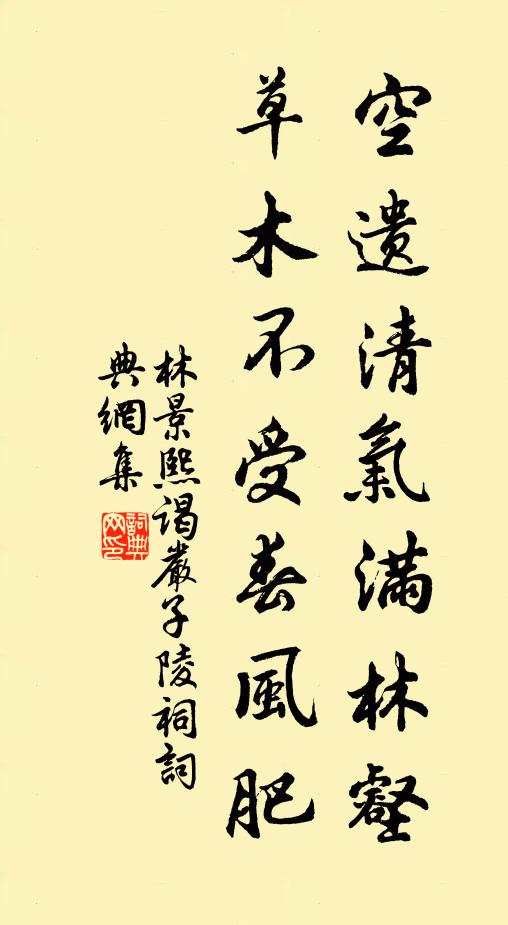 空遗清氣满林壑
草木不受春風肥
林景熙謁嚴子陵祠詞
典網集
詞典
网印